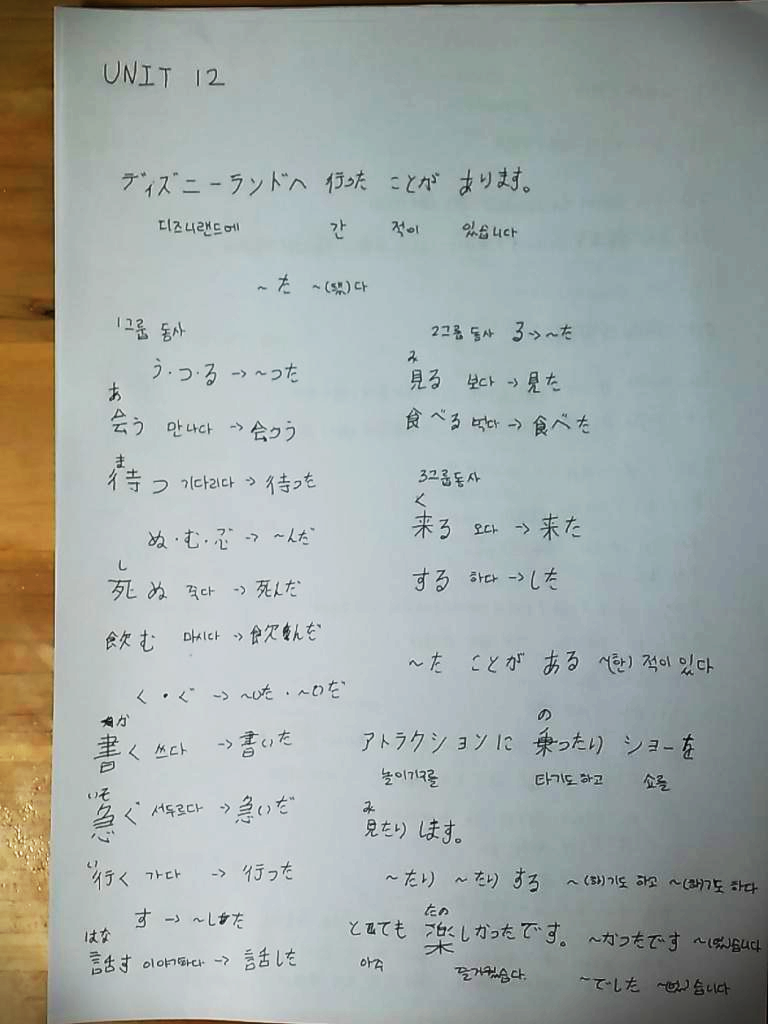 UNIT 12
ディズニーランドへ 行った ことが あります。
디즈니랜드에 간 적이 있습니다
~た ~(했)다
1그룹 동사
う・つ・る → ~った
あ
会う 만나다 → 会つう
ま
待つ 기다리다 → 待った
ぬ・む・ぶ → ~んだ
し
死ぬ 죽다 → 死んだ
飲む 마시다 → 飲んだ
く・ぐ → ~いた・~いだ
か
書く 쓰다 → 書いた
いそ
急ぐ 서두르다 → 急いだ
い
行く 가다 → 行った
す → ~した
はな
話す 이야기하다 → 話した
2그룹 동사 る → ~た
み
見る 보다 → 見た
食べる 먹다 → 食べた
3그룹동사
く
来る 오다 → 来た
する 하다 → した
~た ことが ある ~(한) 적이 있다
の
アトラクションに 乗ったり ショーを
놀이기구를 타기도하고 쇼를
み
見たり します。
~たり ~たり する ~(하)기도 하고 ~(하)기도 하다
たの
とても 楽しかったです。 ~かったです ~(었)습니다
아주 즐거웠습니다. ~でした ~(었)습니다